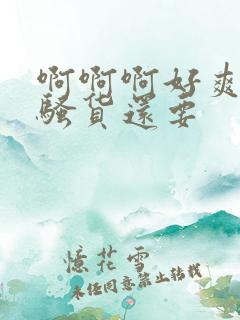 啊啊啊好爽
骚货還要
憶花雪
未经同意禁止转载